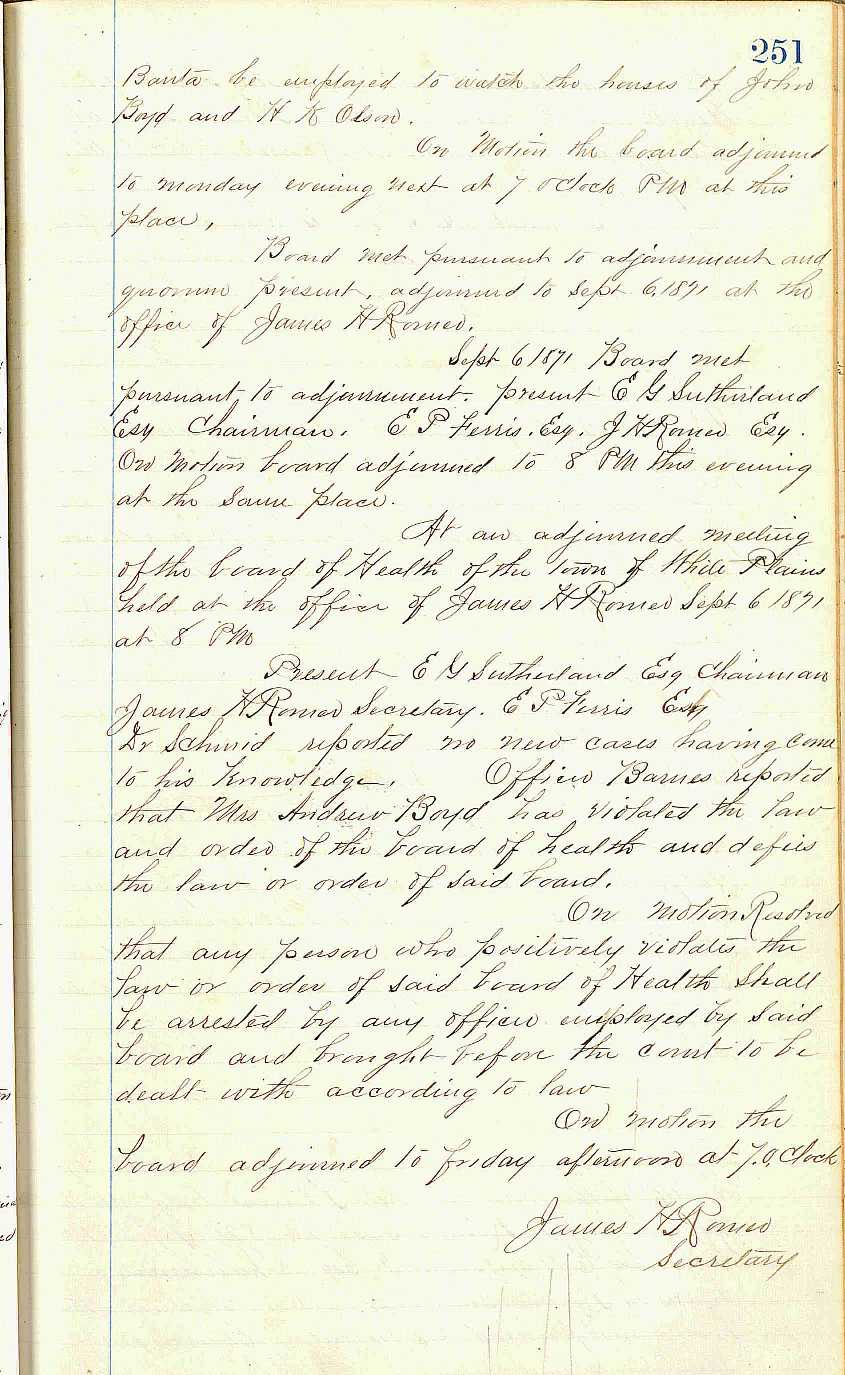 251
Banta be employed to watch the houses of John
Boyd and H K Olson.
On Motion the board adjourned
to monday evening next at 7 oClock PM at this
place,
Board met pursuant to adjournment and
quorum present, adjourned to Sept 6, 1871 at the
office of James H Romer.
Sept 6 1871 Board met
pursuant to adjournment. present E G Sutherland
Esq Chairman. E P Ferris. Esq. J H Romer Esq.
On Motion board adjourned to 8 PM this evening
at the same place.
At an adjourned meeting
of the board of Health of the town of White Plains
held at the office of James H Romer Sept 6 1871
at 8 PM
Present E G Sutherland Esq Chairman
James H Romer Secretary. E P Ferris Esq
Dr Schmid reported no new cases having come
to his Knowledge. Officer Barnes reported
that Mrs Andrew Boyd has violated the law
and order of the board of health and defies
the law or order of said board.
On Motion Resolved
that any person who positively violates the
law or order of said board of Health Shall
be arrested by any officer employed by said
board and brought before the court to be
dealt with according to law
On motion the
board adjourned to friday afternoon at 7. O,Clock
James H Romer
Secretary